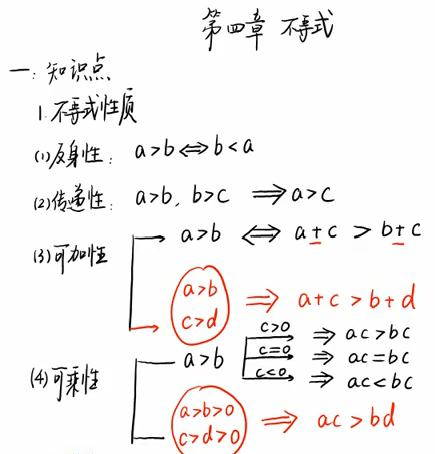 第四章 不等式
一:知识点
1.不等式性质
(1)反身性: a>b⇔b<a
(2)传递性: a>b, b>c ⇒a>c
(3)可加性
a>b ⇔ a+c > b+c
a>b
c>d
⇒ a+c>b+d
(4)可乘性
a>b
c>0 ⇒ ac>bc
c=0 ⇒ ac=bc
c<0 ⇒ ac<bc
a>b>0
c>d>0
⇒ ac>bd